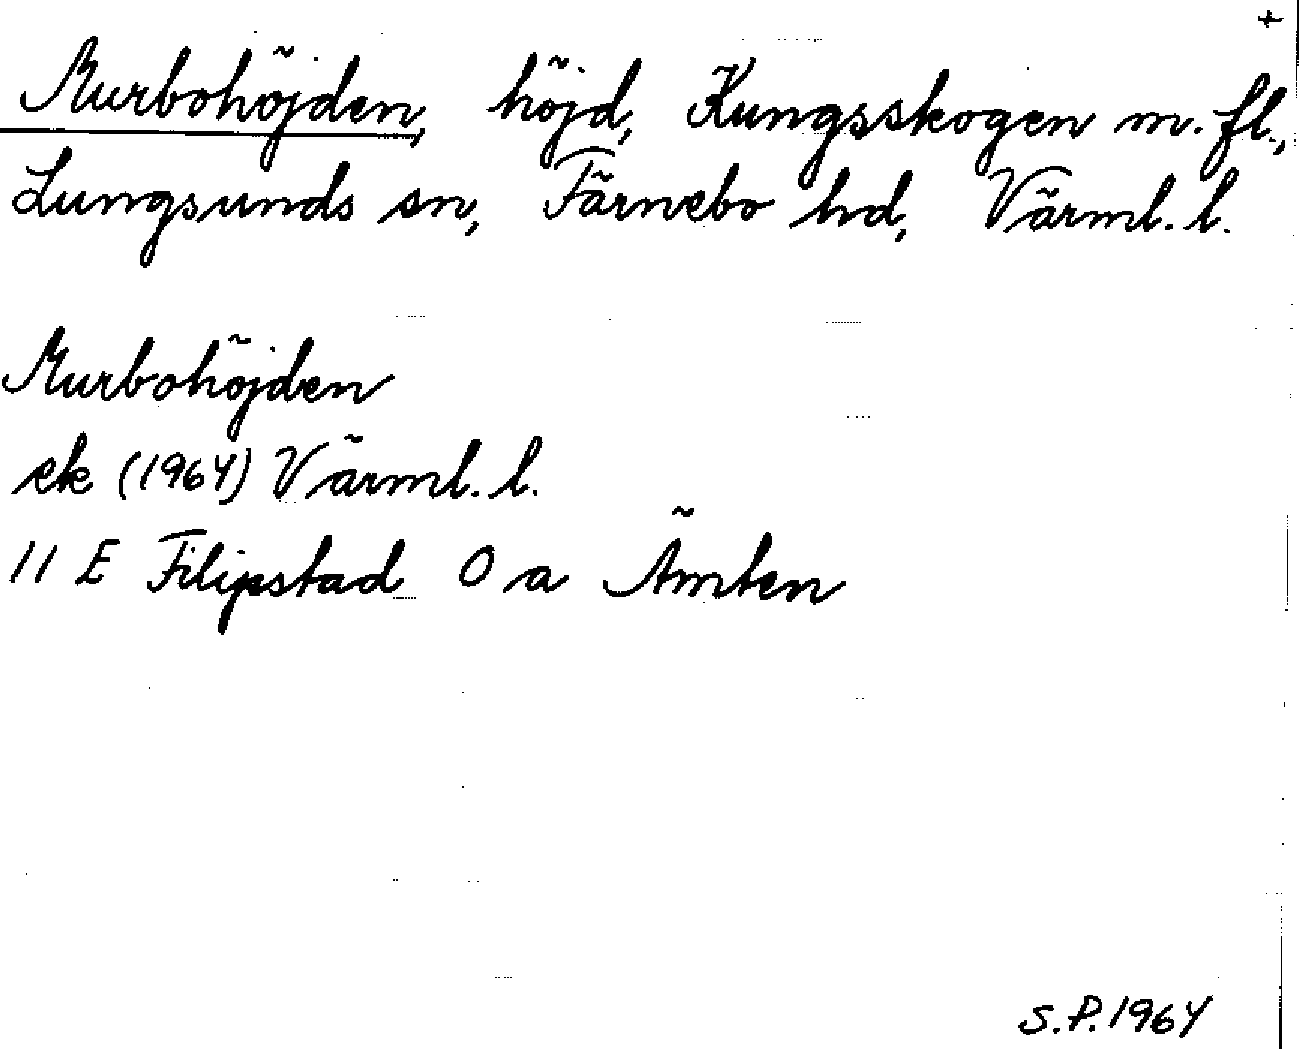 +
Murbohöjden, höjd, Kungsskogen m. fl.,
Lungsunds sn, Färnebo hd, Värml. l.
Murbohöjden
ek (1964) Värml. l.
11 E Filipstad O a Ämten
S.P. 1964